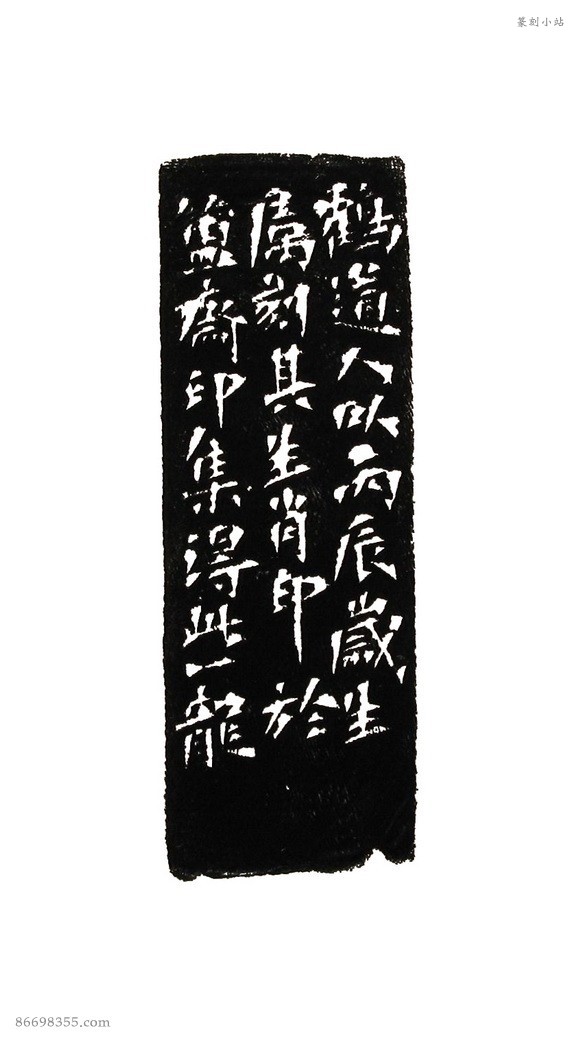 篆刻小站
鶴道人以丙辰歲生
属刻其生肖印於
簠齋印集得此一龍
86698355.com